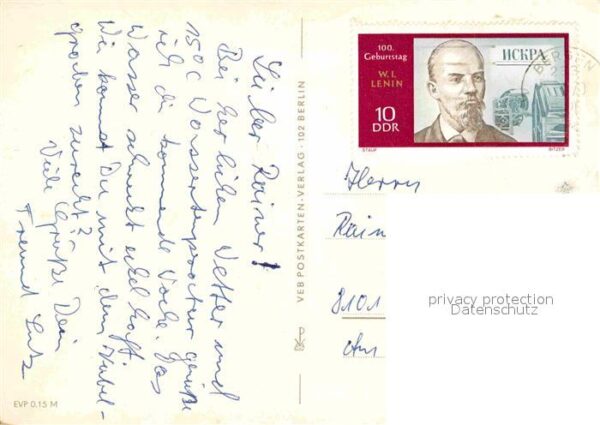 Lieber Rainer!
Bei herrlichem Wetter und
15°C Wassertemperatur grüße
ich die kommende Woche. Das
Wasser schmeckt ekelhaft.
Wie kommst Du mit dem
großen zurecht?
Viele Grüße Dein
Freund Lutz
EVP 0,15 M
VEB POSTKARTEN-VERLAG · 102 BERLIN
100.
Geburtstag
W. I.
LENIN
10
DDR
ИСКРА
STAUF
BITZER
BERGEN
Herrn
Rain
8101
An
privacy protection
Datenschutz